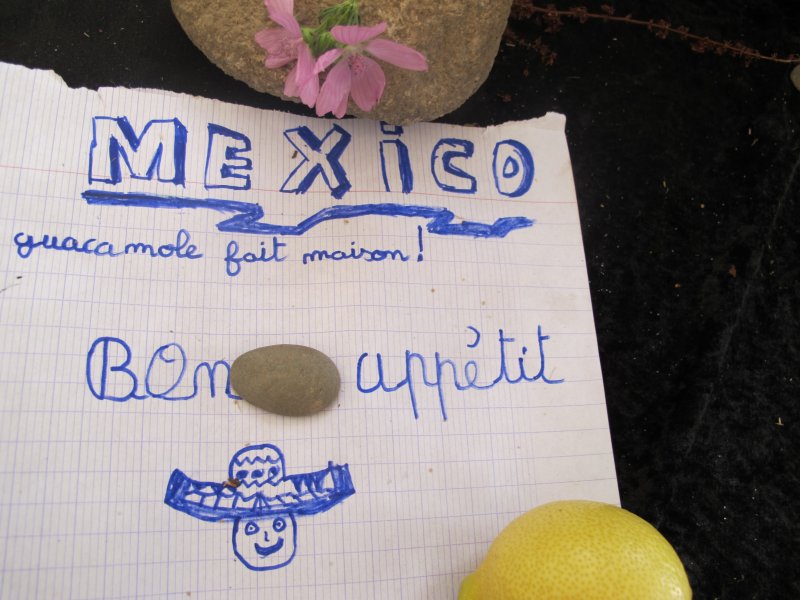 MEXiCO
guacamole fait maison!
BOn appétit